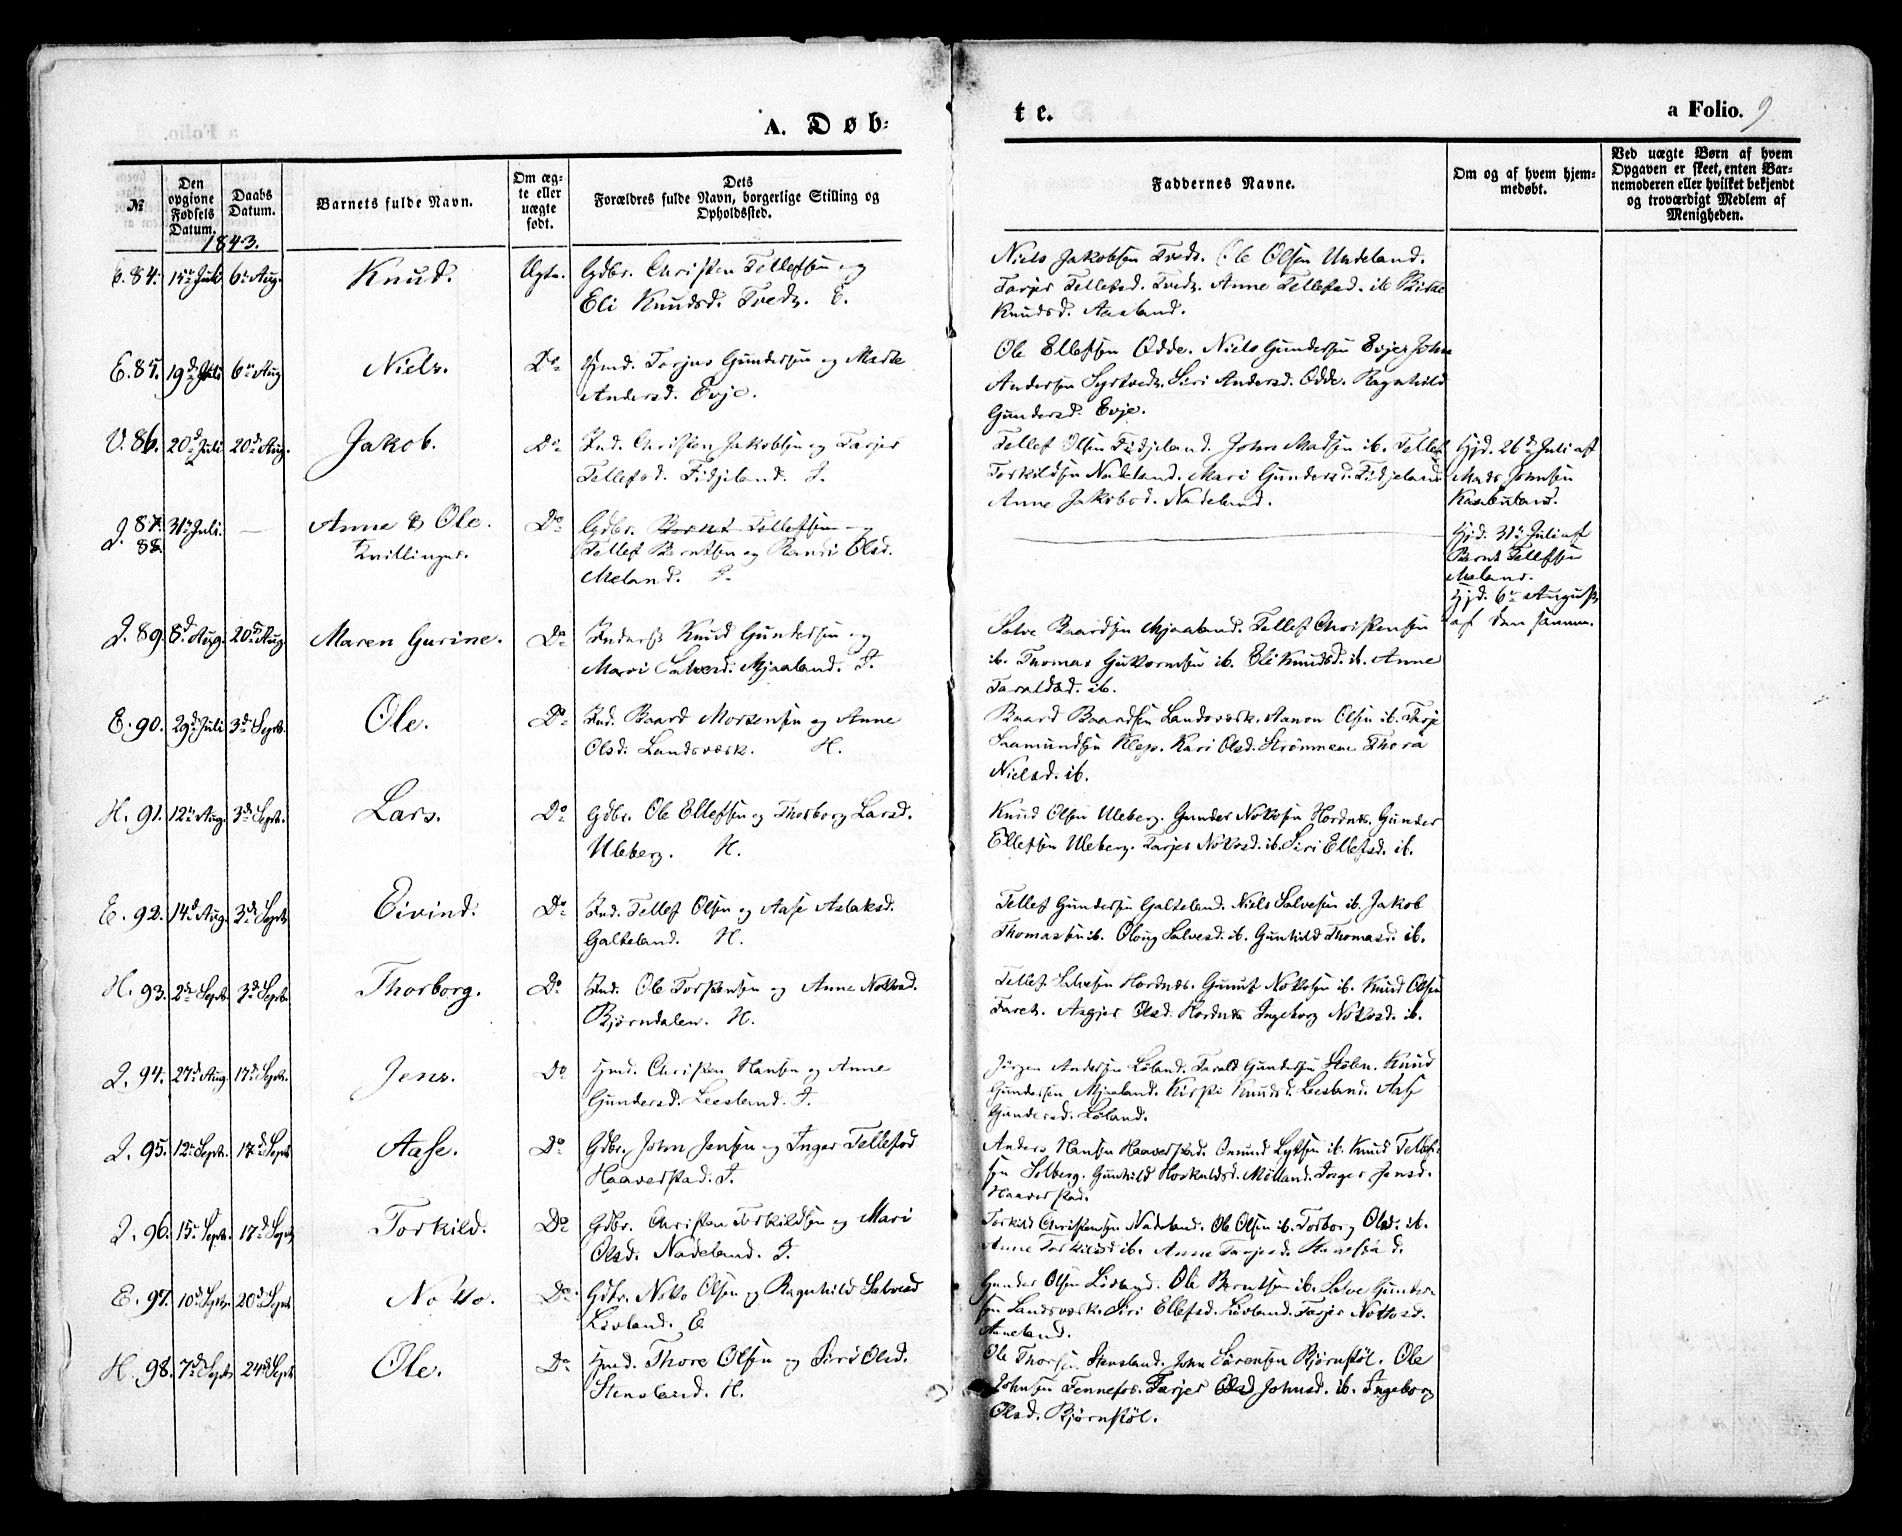 A. Døb=
te.
a Folio. 9
№
Den opgivne Fødsels Datum.
Daabs Datum.
Barnets fulde Navn.
Om ægte eller uægte født.
Dets Forældres fulde Navn, borgerlige Stilling og Opholdssted.
Faddernes Navne.
Om og af hvem hjemmedøbt.
Ved uægte Børn af hvem Opgaven er skeet, enten Barnemoderen eller hvilket bekjendt og troværdigt Medlem af Menigheden.
1843.
E. 84. 15de Juli 6te Aug. Knud. Ægte. Gdbr. Christen Tellefsen og
Eli Knudsd. Tvedt. E.
Niels Jakobsen Tvedt. Ole Olsen Undeland.
Tarjer Tellefsd. Tvedt. Anne Tellefsd. ib.
Knudsd. Aasland.
E. 85. 19de Juli 6te Aug Niels. Do Hmd. Torjus Gundersen og Marte
Andersd. Evje.
Ole Ellefsen Odde. Niels Gundersen Evje. John
Andersen Syrtvedt. Siri Andersd. Odde. Ragnhild
Gundersd. Evje.
V. 86. 20de Juli 20de Aug. Jakob. Do Ind. Christen Jakobsen og Tarjer
Tellefsd. Fidjeland. I.
Tellef Olsen Fidjeland. John Madsen ib. Tellef
Torkildsen Nadeland. Mari Gundersd. Fidjeland
Anne Jakobsd. Nadeland.
Hjd. 26de Juli af
Mads Johnsen
I. 87. 31te Juli. — Anne & Ole. Do Gdbr. Bernt Tellefsen og
88. Tvillinger. Tellef Berntsen og Randi Olsd.
Meland. I.
Hjd. 31te Juli af
Bernt Tellefsen
Meland.
Hjd. 6te August
af den samme.
I. 89. 8de Aug. 20de Aug. Maren Gurine. Do Inderst Knud Gundersen og
Mari Salvesd. Mjaaland. I.
Salve Baardsen Mjaaland. Tellef Christensen
ib. Thomas Guttormsen ib. Eli Knudsd. ib. Anne
Taraldsd. ib.
E. 90. 29de Juli 3de Septb. Ole. Do Ind. Baard Mortensen og Anne
Olsd. Landsværk. H.
Baard Baardsen Landsværk. Aanon Olsen ib. Tarje
Saamundsen Klep. Kari Olsd. Strømmen Thora
Nielsd. ib.
H. 91. 12te Aug. 3de Septb. Lars. Do Gdbr. Ole Ellefsen og Thorborg Larsd.
Uleberg. H.
Knud Olsen Uleberg. Gunder Nottosen Hordnes. Gunder
Ellefsen Uleberg. Tarjer Nottosd. ib. Siri Ellefsd. ib.
E. 92. 14de Aug. 3de Septb. Eivind. Do Ind. Tellef Olsen og Aase Aslaksd.
Galteland. H.
Tellef Gundersen Galteland. Niels Salvesen ib. Jakob
Thomassen ib. Oloug Salvesd. ib. Gunhild Thomasd. ib.
H. 93. 2de Septb. 3de Septb. Thorborg. Do Ind. Ole Torstensen og Anne Nottosd.
Bjørndalen. H.
Tellef Salvesen Hordnes. Gunuf Nottosen ib. Knud Olsen
Faret. Asgjer Olsd. Hordnes Ingeborg Nottosd. ib.
I. 94. 27de Aug. 17de Septb. Jens. Do Hmd. Christen Hansen og Anne
Gundersd. Leesland. I.
Jørgen Andersen Løland. Tarald Gundersen Stølen. Knud
Gundersen Mjaaland. Kirsti Knudsd. Leesland. Aase
Gundersd. Løland.
I. 95. 12te Septb. 17de Septb Aase. Do Gdbr. John Jensen og Inger Tellefsd
Haaverstad. I.
Anders Hansen Haaverstad. Omund Lyksen ib. Knud Tellef-
sen Solberg. Gunhild Hoskuldsd. Mølland. Inger Jensd.
Haaverstad.
I. 96. 15te Septb. 17de Septb Torkild. Do Gdbr. Christen Torkildsen og Mari
Olsd. Nadeland. I.
Torkild Christensen Nadeland. Ole Olsen ib. Torborg Olsd. ib.
Anne Torkildsd ib. Anne Tarjesd.
E. 97. 10de Septb. 20de Septb Notto. Do Gdbr. Notto Olsen og Ragnhild Salvesd
Lisland. E.
Gunder Olsen Ole Berntsen ib. Salve Gunder-
sen Landsværk. Siri Ellefsd. Tarjer Nottosd.
Anneland.
H. 98. 7de Septb 24de Septb Ole. Do Hmd. Thore Olsen og Siri Olsd.
Stensland. H.
Ole Thorsen Stensland. John Sørensen Bjørnstøl. Ole
Johnsen Fennefos. Tarjer Johnsd. ib. Ingeborg
Olsd. Bjørnstøl.